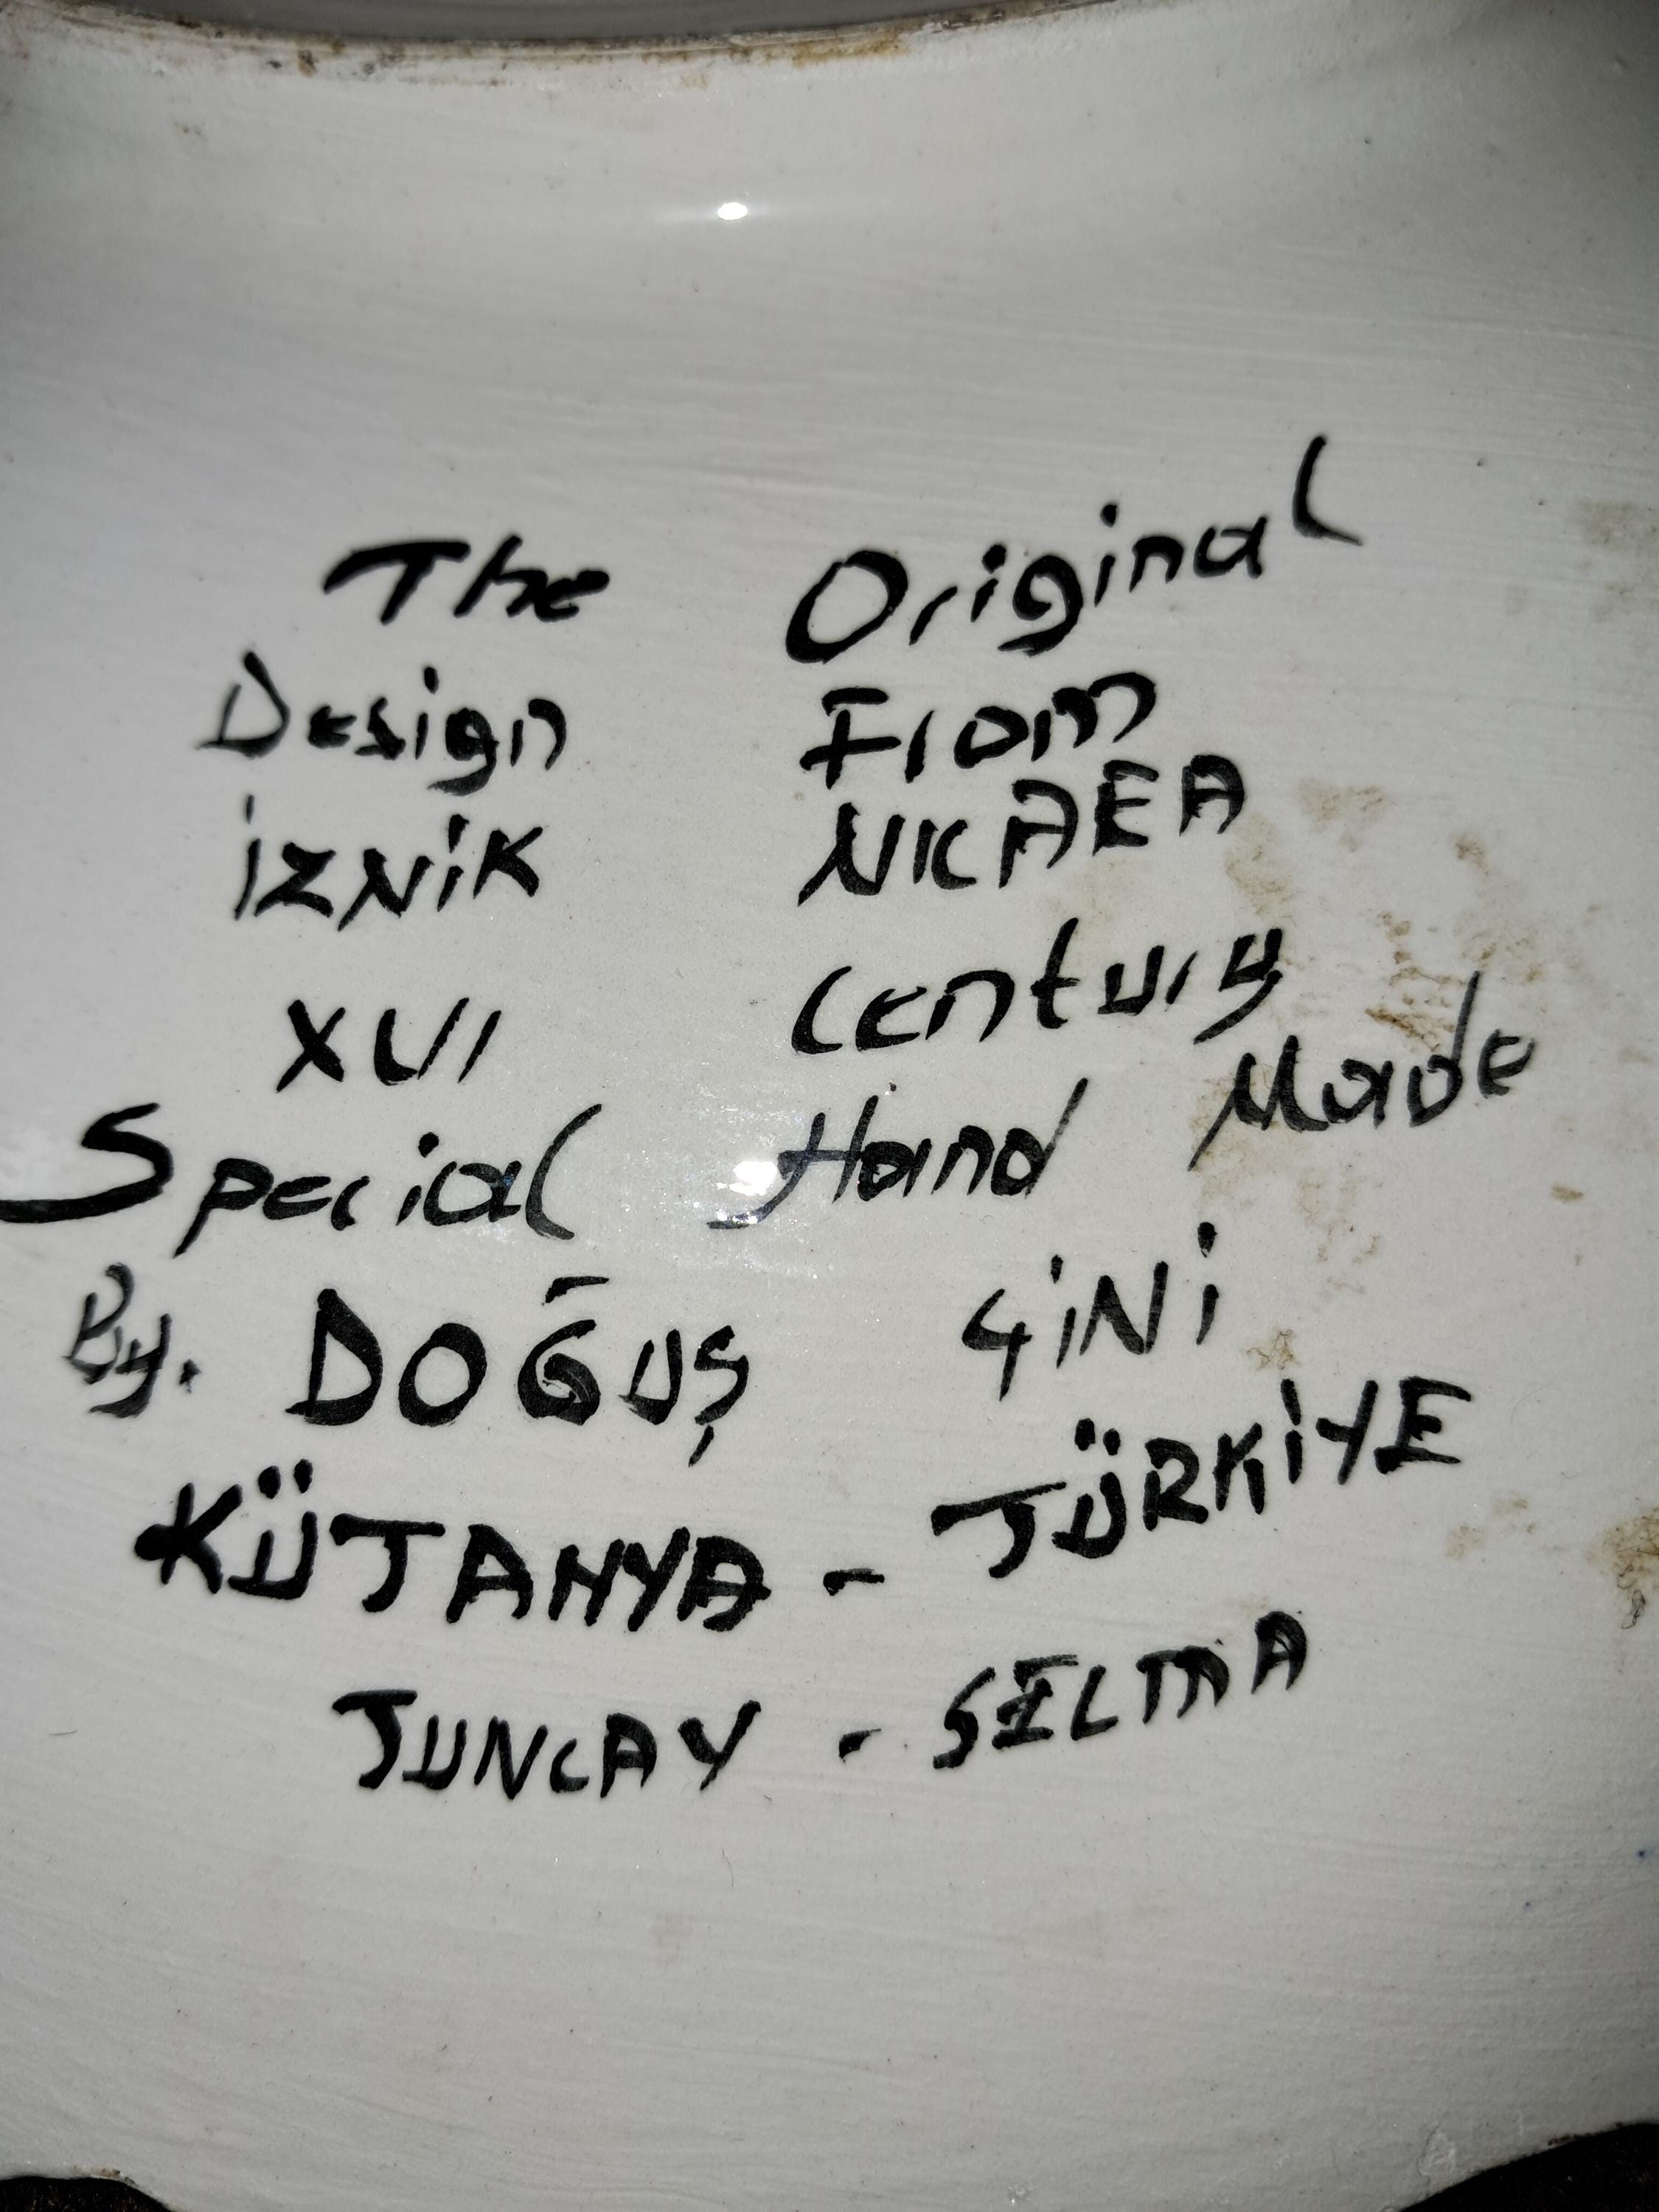 The Original
Design From
İZNİK NKAEA
XVI Century
Special Hand Made
By. DOĞUŞ ÇİNİ
KÜTAHYA - TÜRKİYE
TUNCAY - SELMA